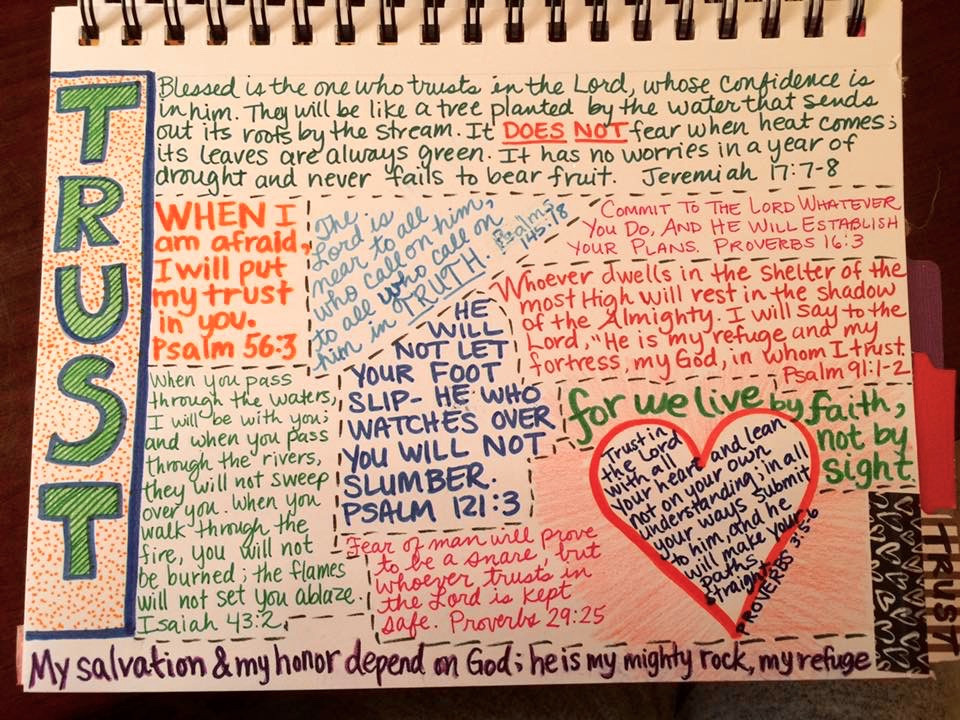 TRUST
Blessed is the one who trusts in the Lord, whose confidence is
in him. They will be like a tree planted by the water that sends
out its roots by the stream. It DOES NOT fear when heat comes;
its leaves are always green. It has no worries in a year of
drought and never fails to bear fruit. Jeremiah 17:7-8
WHEN I
am afraid,
I will put
my trust
in you.
Psalm 56:3
The
Lord is
near to all
who call on him,
to all who call on
him in TRUTH.
Psalms
145:18
COMMIT TO THE LORD WHATEVER
YOU DO, AND HE WILL ESTABLISH
YOUR PLANS. PROVERBS 16:3
Whoever dwells in the shelter of the
most High will rest in the shadow
of the Almighty. I will say to the
Lord, "He is my refuge and my
fortress, my God, in whom I trust.
Psalm 91:1-2
HE
WILL
NOT LET
YOUR FOOT
SLIP- HE WHO
WATCHES OVER
YOU WILL NOT
SLUMBER.
PSALM 121:3
When you pass
through the waters,
I will be with you;
and when you pass
through the rivers,
they will not sweep
over you. When you
walk through the
fire, you will not
be burned; the flames
will not set you ablaze.
Isaiah 43:2
for we live by faith,
not by
sight.
Trust in
the Lord
with all
your heart and lean
not on your own
understanding; in all
your ways submit
to him, and he
will make your
paths
straight.
PROVERBS 3:5-6
Fear of man will prove
to be a snare, but
whoever trusts in
the Lord is kept
safe. Proverbs 29:25
My salvation & my honor depend on God; he is my mighty rock, my refuge
TRUST